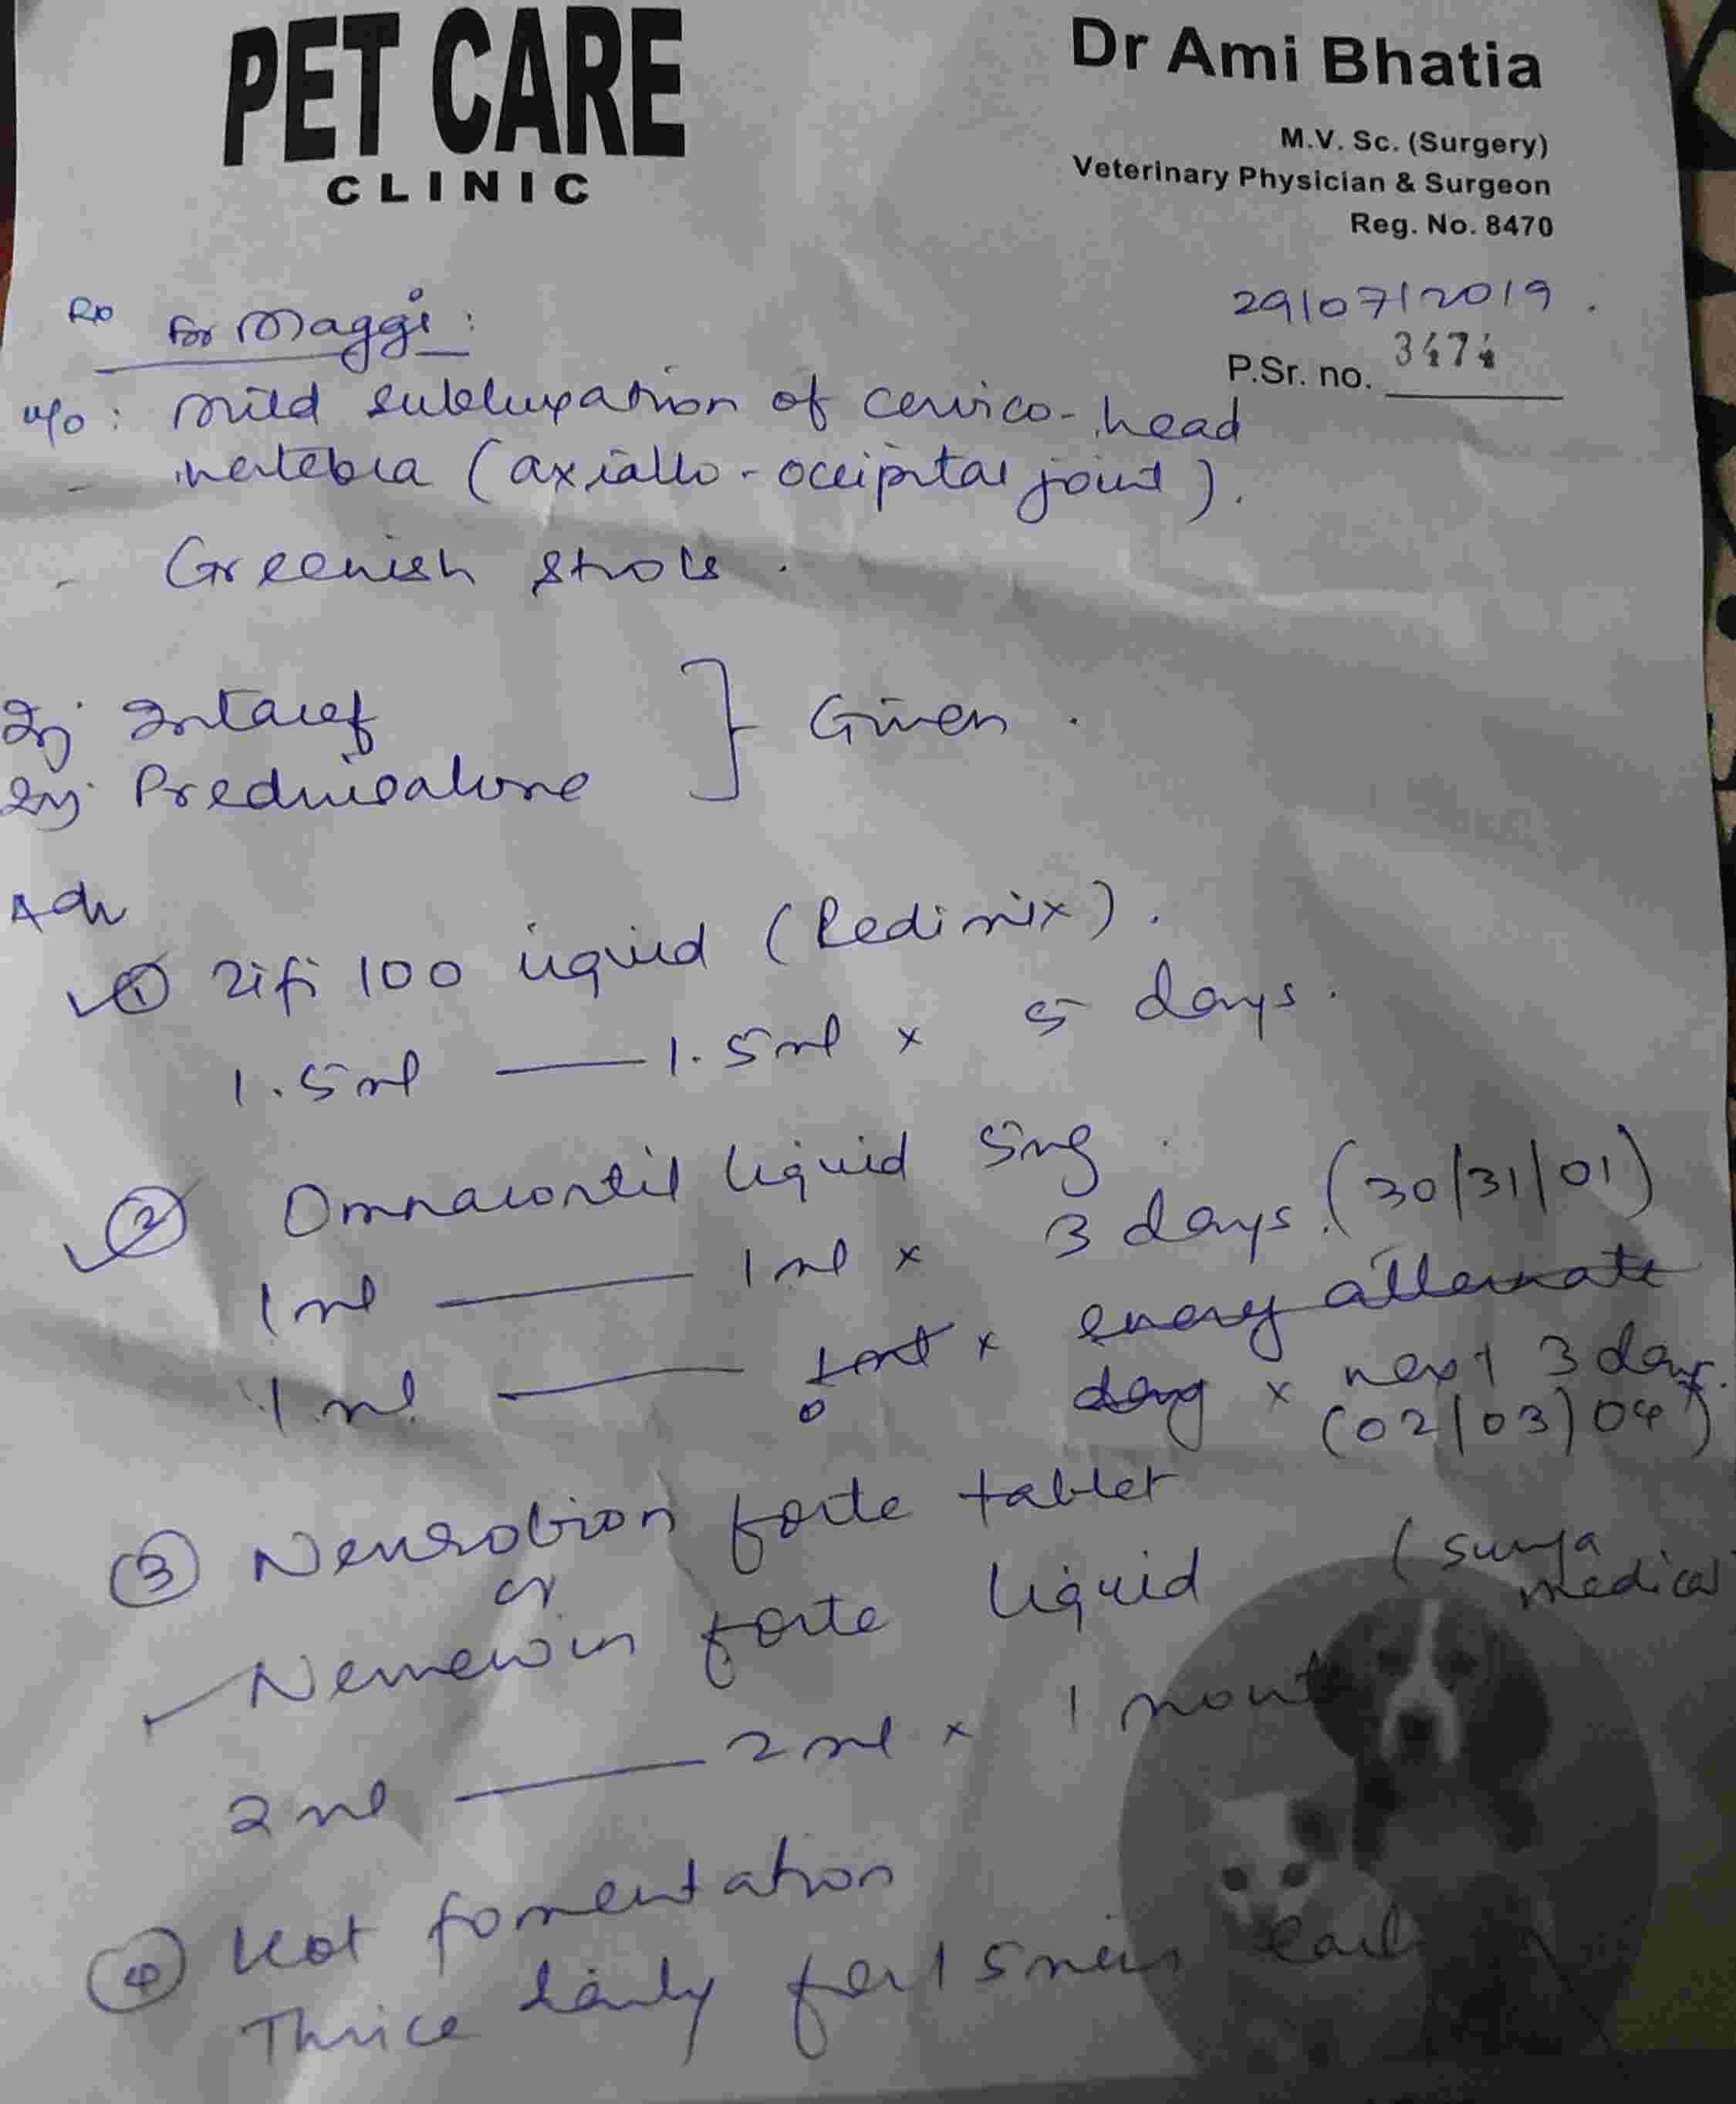 PET CARE
CLINIC
Dr Ami Bhatia
M.V. Sc. (Surgery)
Veterinary Physician & Surgeon
Reg. No. 8470
29/07/2019.
P.Sr. no. 3474
for Maggi:
: mild subluxation of cervico-head
vertebra (axiallo-occipital joint).
- Greenish stools.
Inj. Intacef
Inj. Prednisolone } Given.
Adv
① Zifi 100 liquid (Redimix).
1.5ml — 1.5ml x 5 days.
② Omnacortil liquid 5mg.
1ml — 1ml x 3 days. (30/31/01)
1ml — 0 x every alternate
day x next 3 days.
(02/03/04)
③ Neurobion forte tablet
or
forte liquid (Surya
medical
2ml — 2ml x 1 month
④ Hot fomentation
Thrice daily for 15min each